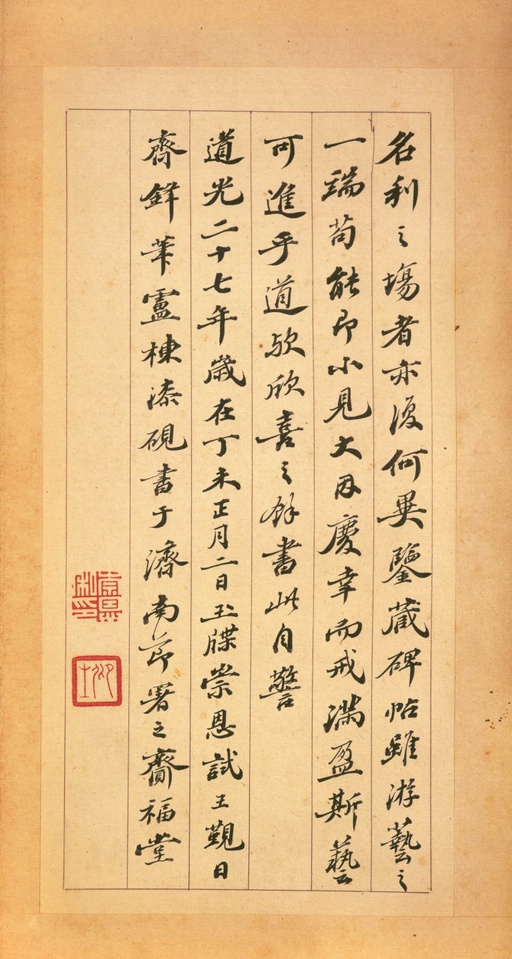 名利之塲者亦復何異鑒藏碑帖雖游藝之
一端苟能即小見大因慶幸而戒滿盈斯藝
可進乎道歟欣喜之餘書此自警
道光二十七年歲在丁未正月二日玉牒崇恩試王覲日
齋鋒筆盧棟漆硯書于濟南節署之賚福堂